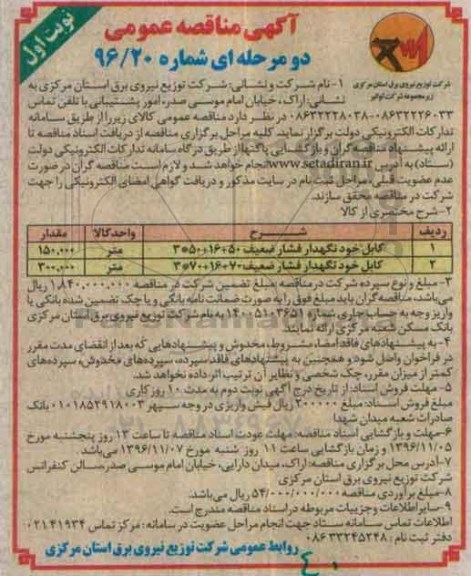 نوبت اول
آگهی مناقصه عمومی
دو مرحله ای شماره ۹۶/۲۰
شرکت توزیع نیروی برق استان مرکزی
زیرمجموعه شرکت توانیر
۱-نام شرکت و نشانی: شرکت توزیع نیروی برق استان مرکزی به
نشانی: اراک، خیابان امام موسی صدر، امور پشتیبانی با تلفن تماس
۰۸۶۳۲۲۲۶۰۳۳-۰۸۶۳۲۲۲۸۰۳۸ در نظر دارد مناقصه عمومی کالای زیر را از طریق سامانه
تدارکات الکترونیکی دولت برگزار نماید. کلیه مراحل برگزاری مناقصه از دریافت اسناد مناقصه تا
ارائه پیشنهاد مناقصه گران و بازگشایی پاکتها از طریق درگاه سامانه تدارکات الکترونیکی دولت
(ستاد) به آدرس www.setadiran.ir انجام خواهد شد و لازم است مناقصه گران در صورت
عدم عضویت قبلی، مراحل ثبت نام در سایت مذکور و دریافت گواهی امضای الکترونیکی را جهت
شرکت در مناقصه محقق سازند.
۲-شرح مختصری از کالا
ردیف شرح واحد کالا مقدار
۱ کابل خود نگهدار فشار ضعیف ۵۰+۱۶+۵۰*۳ متر ۱۵۰,۰۰۰
۲ کابل خود نگهدار فشار ضعیف ۷۰+۱۶+۷۰*۳ متر ۳۰۰,۰۰۰
۳-مبلغ و نوع سپرده شرکت در مناقصه: مبلغ تضمین شرکت در مناقصه ۱,۸۴۰,۰۰۰,۰۰۰ ریال
می‌باشد، مناقصه گران باید مبلغ فوق را به صورت ضمانت نامه بانکی و یا چک تضمین شده بانکی یا
واریز وجه به حساب جاری شماره ۱۴۰۰۵۱۰۳۶۵۱ به نام شرکت توزیع نیروی برق استان مرکزی
بانک مسکن شعبه مرکزی ارائه نمایند.
۴-به پیشنهادهای فاقد امضا، مشروط، مخدوش و پیشنهادهایی که بعد از انقضای مدت مقرر
در فراخوان واصل شود و همچنین به پیشنهادهای فاقد سپرده، سپرده‌های مخدوش، سپرده‌های
کمتر از میزان مقرر، چک شخصی و نظایر آن ترتیب اثر داده نخواهد شد.
۵-مهلت فروش اسناد: از تاریخ درج آگهی نوبت دوم به مدت ۱۰ روز کاری
مبلغ فروش اسناد: مبلغ ۲۰۰۰۰۰ ریال فیش واریزی در وجه سپهر ۰۱۰۱۸۵۲۹۱۸۰۰۳ بانک
صادرات شعبه میدان شهدا
۶-مهلت و بازگشایی اسناد مناقصه: مهلت عودت اسناد مناقصه تا ساعت ۱۳ روز پنجشنبه مورخ
۱۳۹۶/۱۱/۰۵ و زمان بازگشایی ساعت ۱۱ روز شنبه مورخ ۱۳۹۶/۱۱/۰۷ می باشد.
۷-آدرس محل برگزاری مناقصه: اراک، میدان دارایی، خیابان امام موسی صدر، سالن کنفرانس
شرکت توزیع نیروی برق استان مرکزی
۸-مبلغ برآوردی مناقصه ۵۴/۰۰۰/۰۰۰/۰۰۰ ریال می‌باشد.
۹-سایر اطلاعات و جزییات مربوطه در اسناد مناقصه مندرج است.
اطلاعات تماس سامانه ستاد جهت انجام مراحل عضویت در سامانه: مرکز تماس ۰۲۱۴۱۹۳۴
دفتر ثبت نام: ۰۸۶۳۳۲۴۵۲۴۸
روابط عمومی شرکت توزیع نیروی برق استان مرکزی